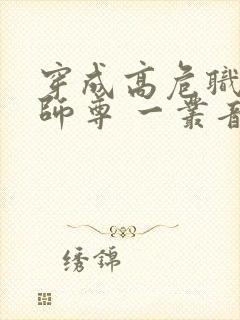 穿成高危職
師尊 一叢音
绣錦